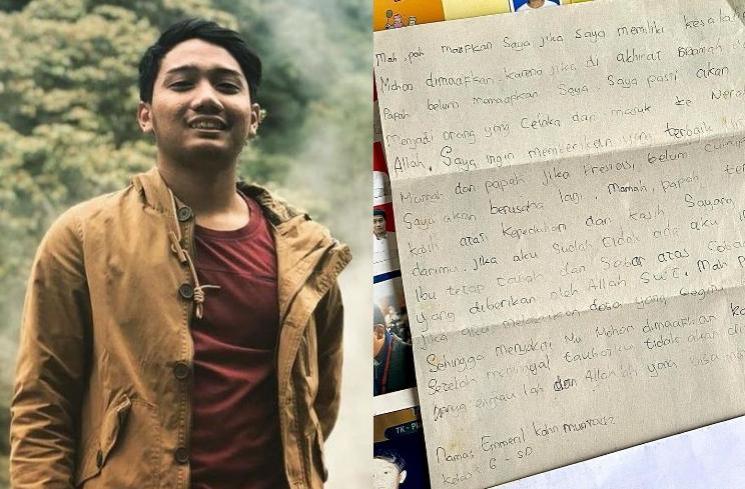 Mah, pah maafkan Saya jika Saya memiliki
Mohon dimaafkan. karena jika di akhirat
Papah belum memaafkan Saya. Saya pasti akan
menjadi orang yang Celaka dan masuk ke
Allah, Saya ingin memberikan yang terbaik
Mamah dan papah jika Prestasi belum
Saya akan berusaha lagi. Mamah, papah
kasih atas Kepedulian dan kasih Sayang
darimu. Jika aku Sudah tidak ada aku
Ibu tetap tabah dan Sabar atas
yang diberikan oleh Allah SWT, Mah
Jika aku melakukan dosa yang
Sehingga menyakiti Mu Mohon dimaafkan
Setelah meninggal taubatku tidak akan
hanya engkau lah dan Allah lah yang bisa
Nama: Emmeril Kahn mumtadz
kelas: 6 - SD
TK - P